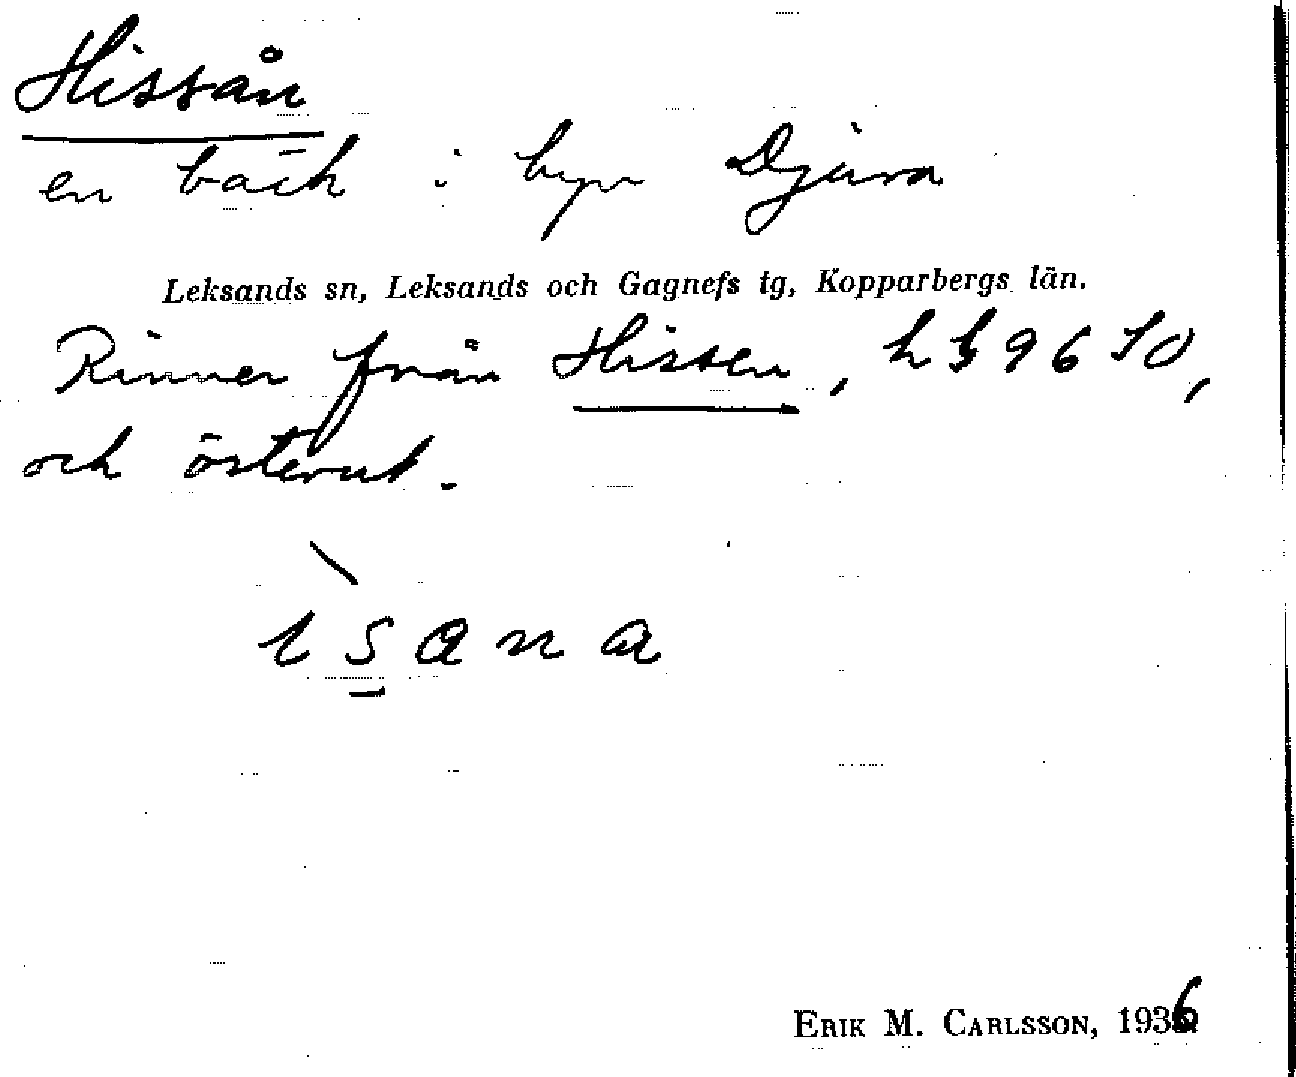 Hissån
en bäck i byn Djura
Leksands sn, Leksands och Gagnefs tg, Kopparbergs län.
Rinner från Hissen,
och österut.
ısana
ERIK M. CARLSSON, 1936